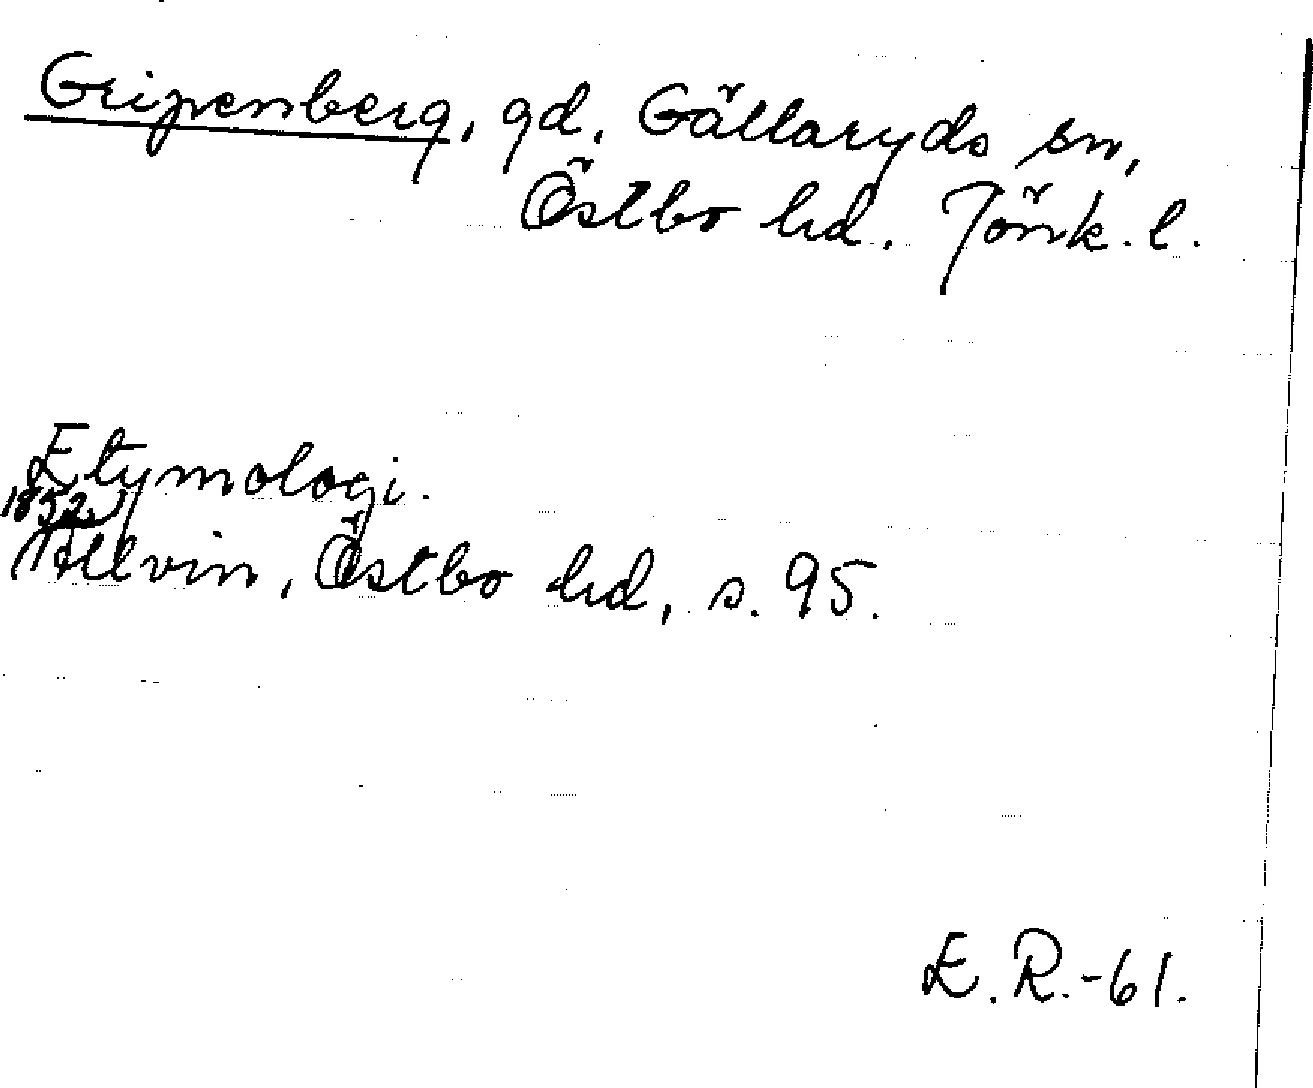 Gripenberg, gd, Gällaryds sn,
Östbo hd. Jönk. l.
Etymologi.
1852.
Allvin, Östbo hd, s. 95.
E. R.-61.